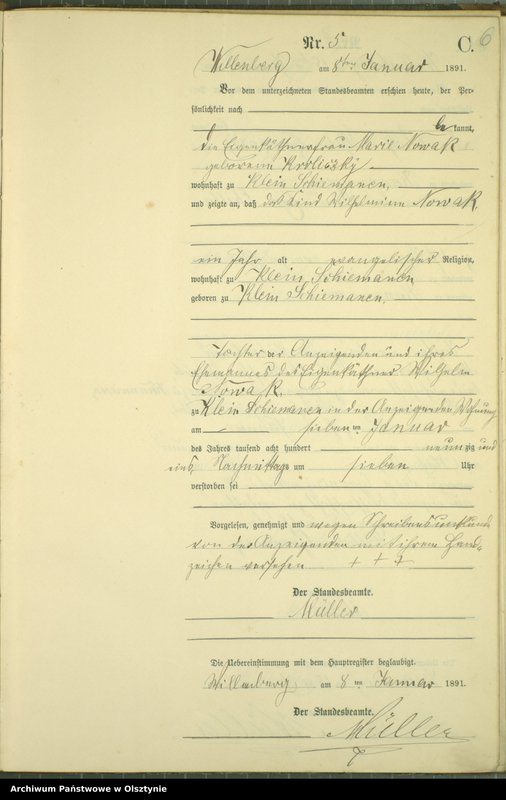 Nr. 5
C.
6
Willenberg am 8ten Januar 1891.
Vor dem unterzeichneten Standesbeamten erschien heute, der Per-
sönlichkeit nach
be kannt,
die Eigenkäthnerfrau Marie Nowak
geborene Krolitzky
wohnhaft zu Klein Schiemanen,
und zeigte an, daß das Kind Wilhelmine Nowak,
ein Jahr alt evangelischer Religion,
wohnhaft zu Klein Schiemanen
geboren zu Klein Schiemanen,
Tochter der Anzeigenden und ihres
Ehemannes des Eigenkäthner Wilhelm
Nowak,
zu Klein Schiemanen in der Anzeigenden Wohnung
am sieben ten Januar
des Jahres tausend acht hundert neun zig und
eins Nachmittags um sieben Uhr
verstorben sei
Vorgelesen, genehmigt und wegen Schreibensunkunde
von der Anzeigenden mit ihrem Hand-
zeichen versehen + + +
Der Standesbeamte.
Müller
Die Uebereinstimmung mit dem Hauptregister beglaubigt.
Willenberg, am 8 ten Januar 1891.
Der Standesbeamte.
Müller
Archiwum Państwowe w Olsztynie